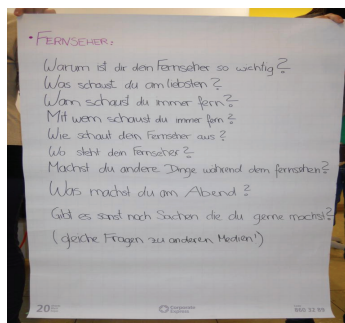 • FERNSEHER:
Warum ist dir dein Fernseher so wichtig?
Was schaust du am liebsten?
Wann schaust du immer fern?
Mit wem schaust du immer fern?
Wie schaut dein Fernseher aus?
Wo steht dein Fernseher?
Machst du andere Dinge während dem fernsehen?
Was machst du am Abend?
Gibt es sonst noch Sachen die du gerne machst?
(gleiche Fragen zu anderen Medien!)
20
Corporate Express